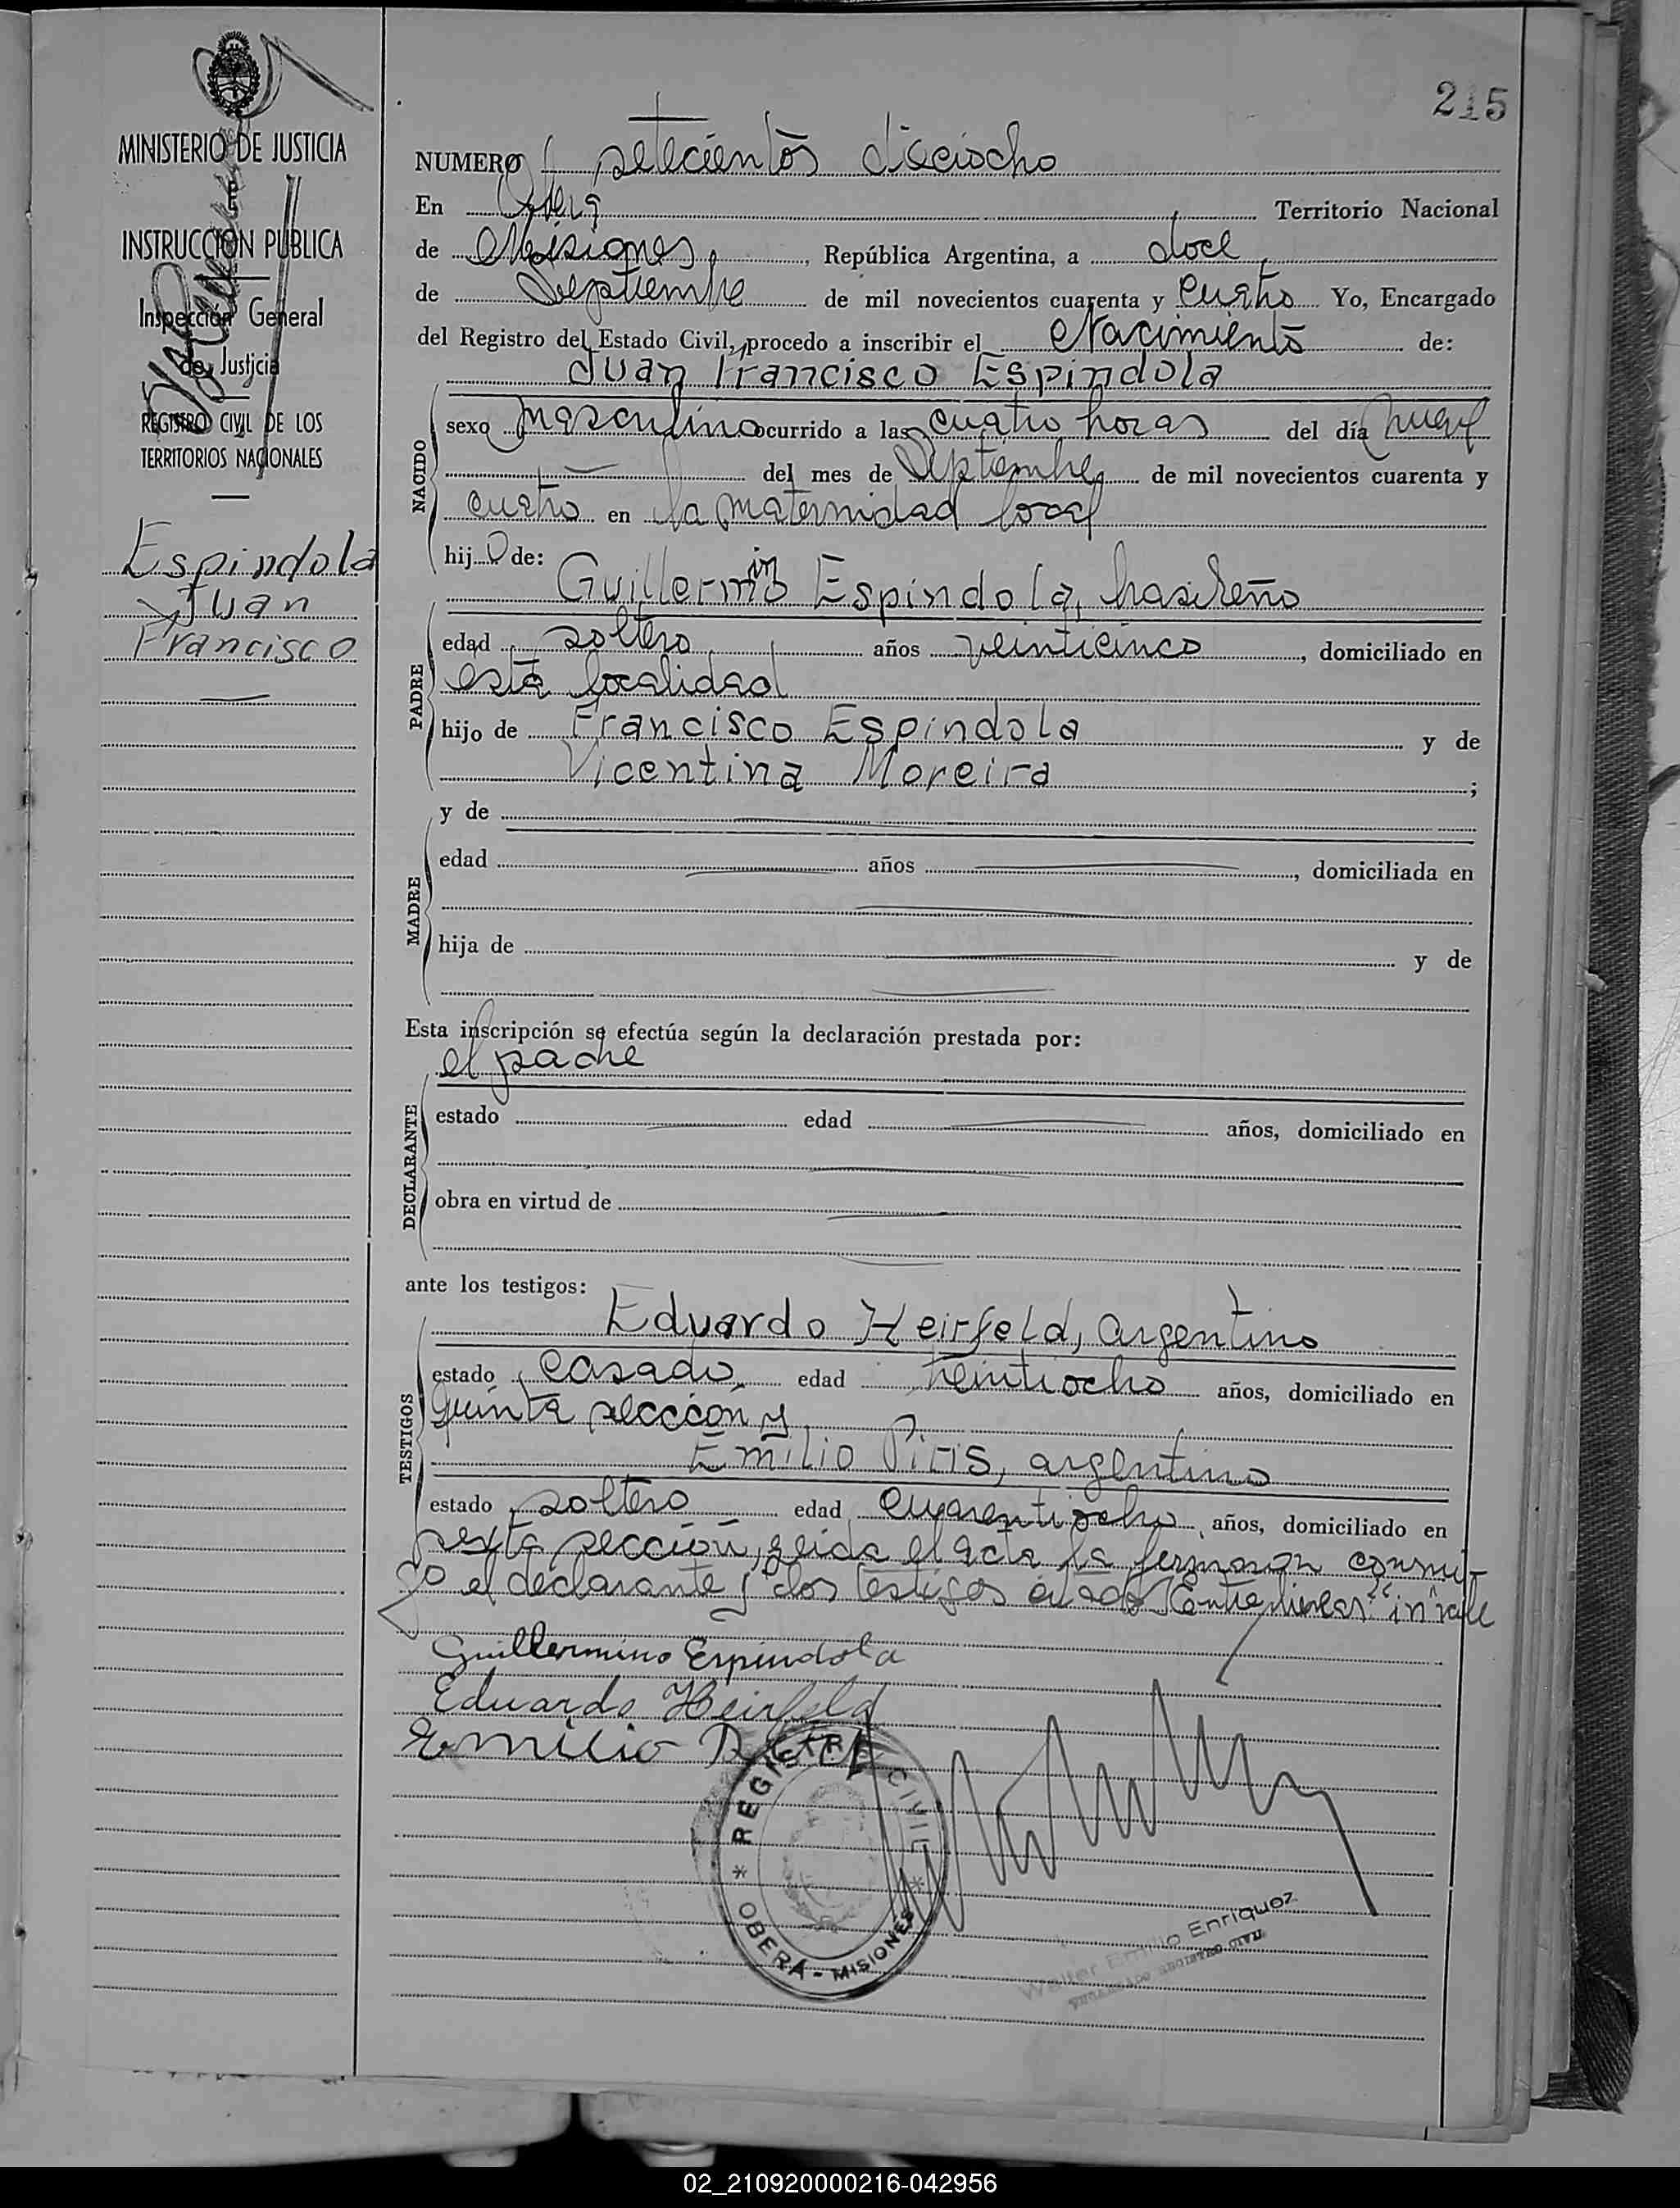 215
MINISTERIO DE JUSTICIA
E
INSTRUCCION PUBLICA
Inspección General
de Justicia
REGISTRO CIVIL DE LOS
TERRITORIOS NACIONALES
Espindola
Juan
Francisco
NUMERO setecientos dieciocho
En Oberá Territorio Nacional
de Misiones, República Argentina, a doce
de Septiembre de mil novecientos cuarenta y cuatro Yo, Encargado
del Registro del Estado Civil, procedo a inscribir el Nacimiento de:
Juan Francisco Espindola
NACIDO
sexo masculino ocurrido a las cuatro horas del día nueve
del mes de Septiembre de mil novecientos cuarenta y
cuatro en la maternidad local
hijo de:
Guillermino Espindola, brasileño
PADRE
edad soltero años veinticinco, domiciliado en
esta localidad
hijo de Francisco Espindola y de
Vicentina Moreira ;
y de
MADRE
edad años , domiciliada en
hija de y de
Esta inscripción se efectúa según la declaración prestada por:
el padre
DECLARANTE
estado edad años, domiciliado en
obra en virtud de
ante los testigos:
Eduardo Heirfeld, argentino
TESTIGOS
estado casado edad años, domiciliado en
quinta sección y
Emilio Piris, argentino
estado soltero edad cuarentiocho años, domiciliado en
sexta sección, leida el acta la firmaron conmi-
go el declarante y los testigos Entrelineas "in" vale
Guillermino Espindola
Eduardo Heirfeld
Emilio
REGISTRO CIVIL
* OBERA - MISIONES *
Walter Emilio Enriquez
ENCARGADO REGISTRO CIVIL
02_210920000216-042956